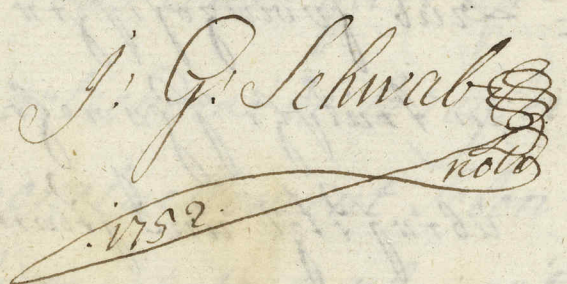 J: G: Schwab
noto
.1752.